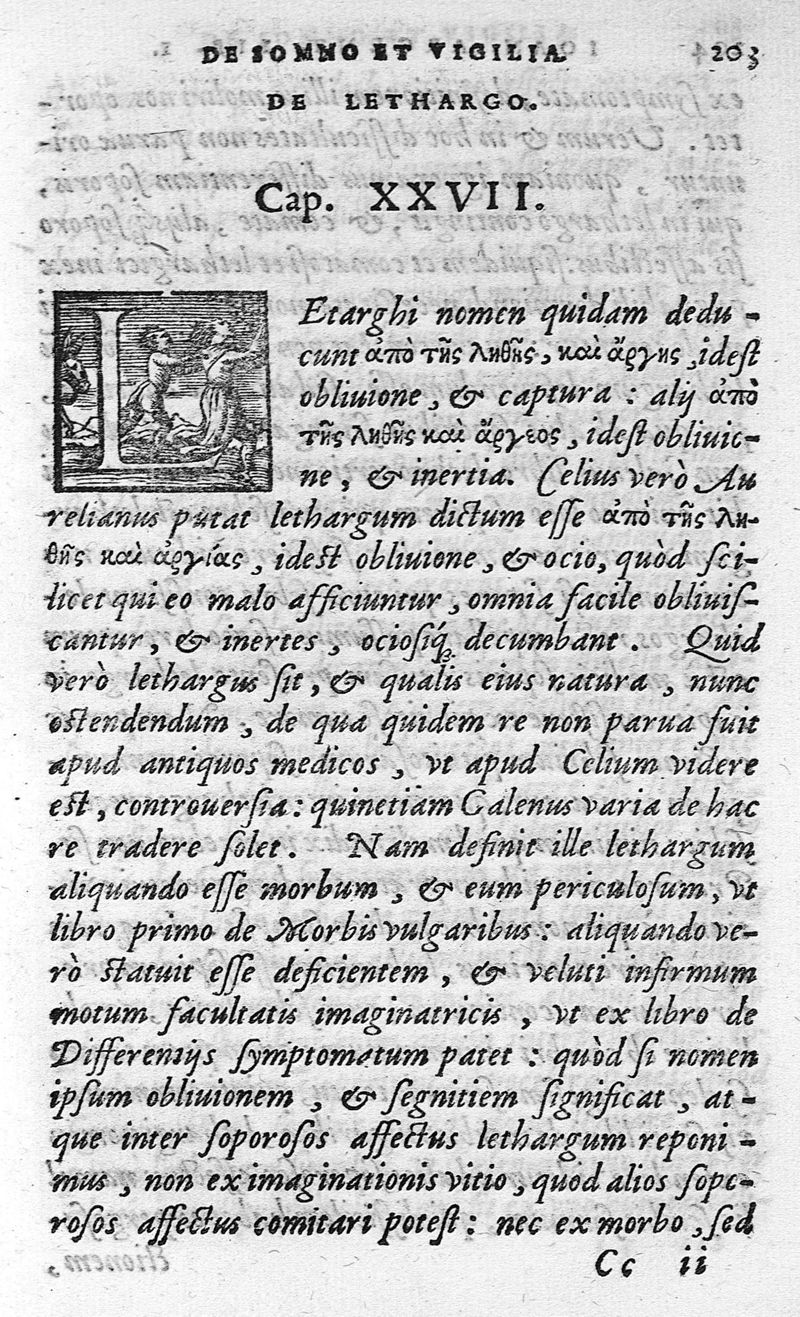 DE SOMNO ET VIGILIA. 203
DE LETHARGO.
Cap. XXVII.
LEtarghi nomen quidam dedu-
cunt ἀπὸ τῆς ληθῆς, καὶ ἄργης, idest
obliuione, & captura: alij ἀπὸ
τῆς ληθῆς καὶ ἄργεος, idest obliuio-
ne, & inertia. Celius verò Au
relianus putat lethargum dictum esse ἀπὸ τῆς λη-
θῆς καὶ ἀργίας, idest obliuione, & ocio, quòd sci-
licet qui eo malo afficiuntur, omnia facile obliuis-
cantur, & inertes, ociosiq́; decumbant. Quid
verò lethargus sit, & qualis eius natura, nunc
ostendendum, de qua quidem re non parua fuit
apud antiquos medicos, vt apud Celium videre
est, controuersia: quinetiam Galenus varia de hac
re tradere solet. Nam definit ille lethargum
aliquando esse morbum, & eum periculosum, vt
libro primo de Morbis vulgaribus: aliquando ve-
rò statuit esse deficientem, & veluti infirmum
motum facultatis imaginatricis, vt ex libro de
Differentijs symptomatum patet: quòd si nomen
ipsum obliuionem, & segnitiem significat, at-
que inter soporosos affectus lethargum reponi-
mus, non ex imaginationis vitio, quod alios sopo-
rosos affectus comitari potest: nec ex morbo, sed
Cc ii